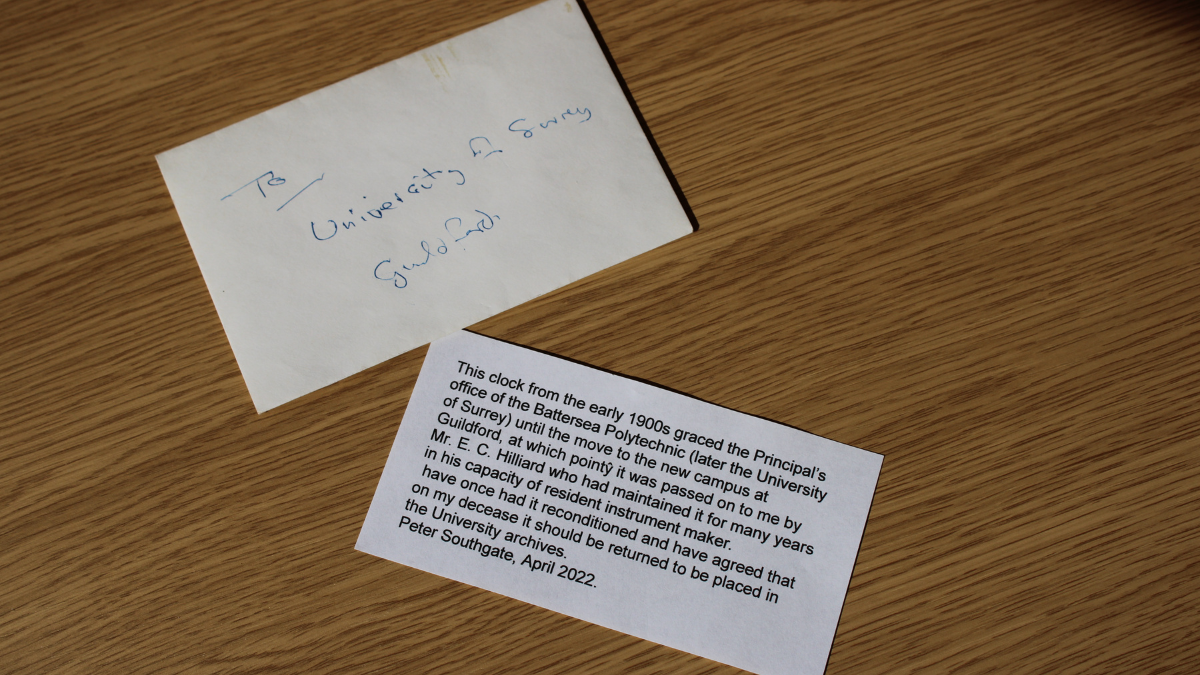 To
University of Surrey
Guildford.
This clock from the early 1900s graced the Principal's
office of the Battersea Polytechnic (later the University
of Surrey) until the move to the new campus at
Guildford, at which pointŷ it was passed on to me by
Mr. E. C. Hilliard who had maintained it for many years
in his capacity of resident instrument maker.
have once had it reconditioned and have agreed that
on my decease it should be returned to be placed in
the University archives.
Peter Southgate, April 2022.